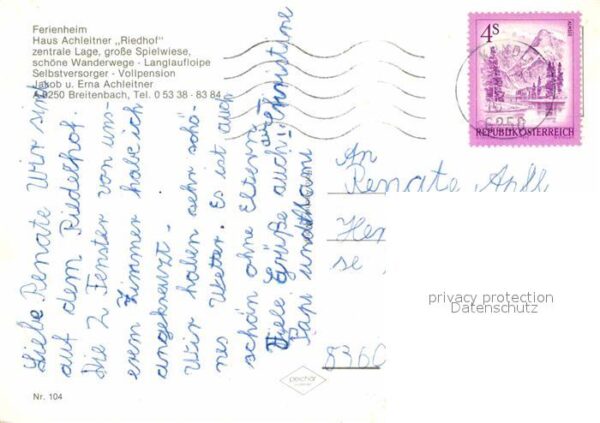 Ferienheim
Haus Achleitner „Riedhof"
zentrale Lage, große Spielwiese,
schöne Wanderwege - Langlaufloipe
Selbstversorger - Vollpension
Jakob u. Erna Achleitner
A-6250 Breitenbach, Tel. 0 53 38 - 83 84
Liebe Renate Wir sind
auf dem Riedelhof.
Die 2 Fenster von uns-
erem Zimmer habe ich
angekreuzt.
Wir haben sehr schö-
nes Wetter. Es ist auch
schön ohne Eltern.
Viele Grüße auch an
Papi und Mami
Christine
4S
ALMSEE
REPUBLIK ÖSTERREICH
6250
An
Renate
se,
8360
privacy protection
Datenschutz
Nr. 104